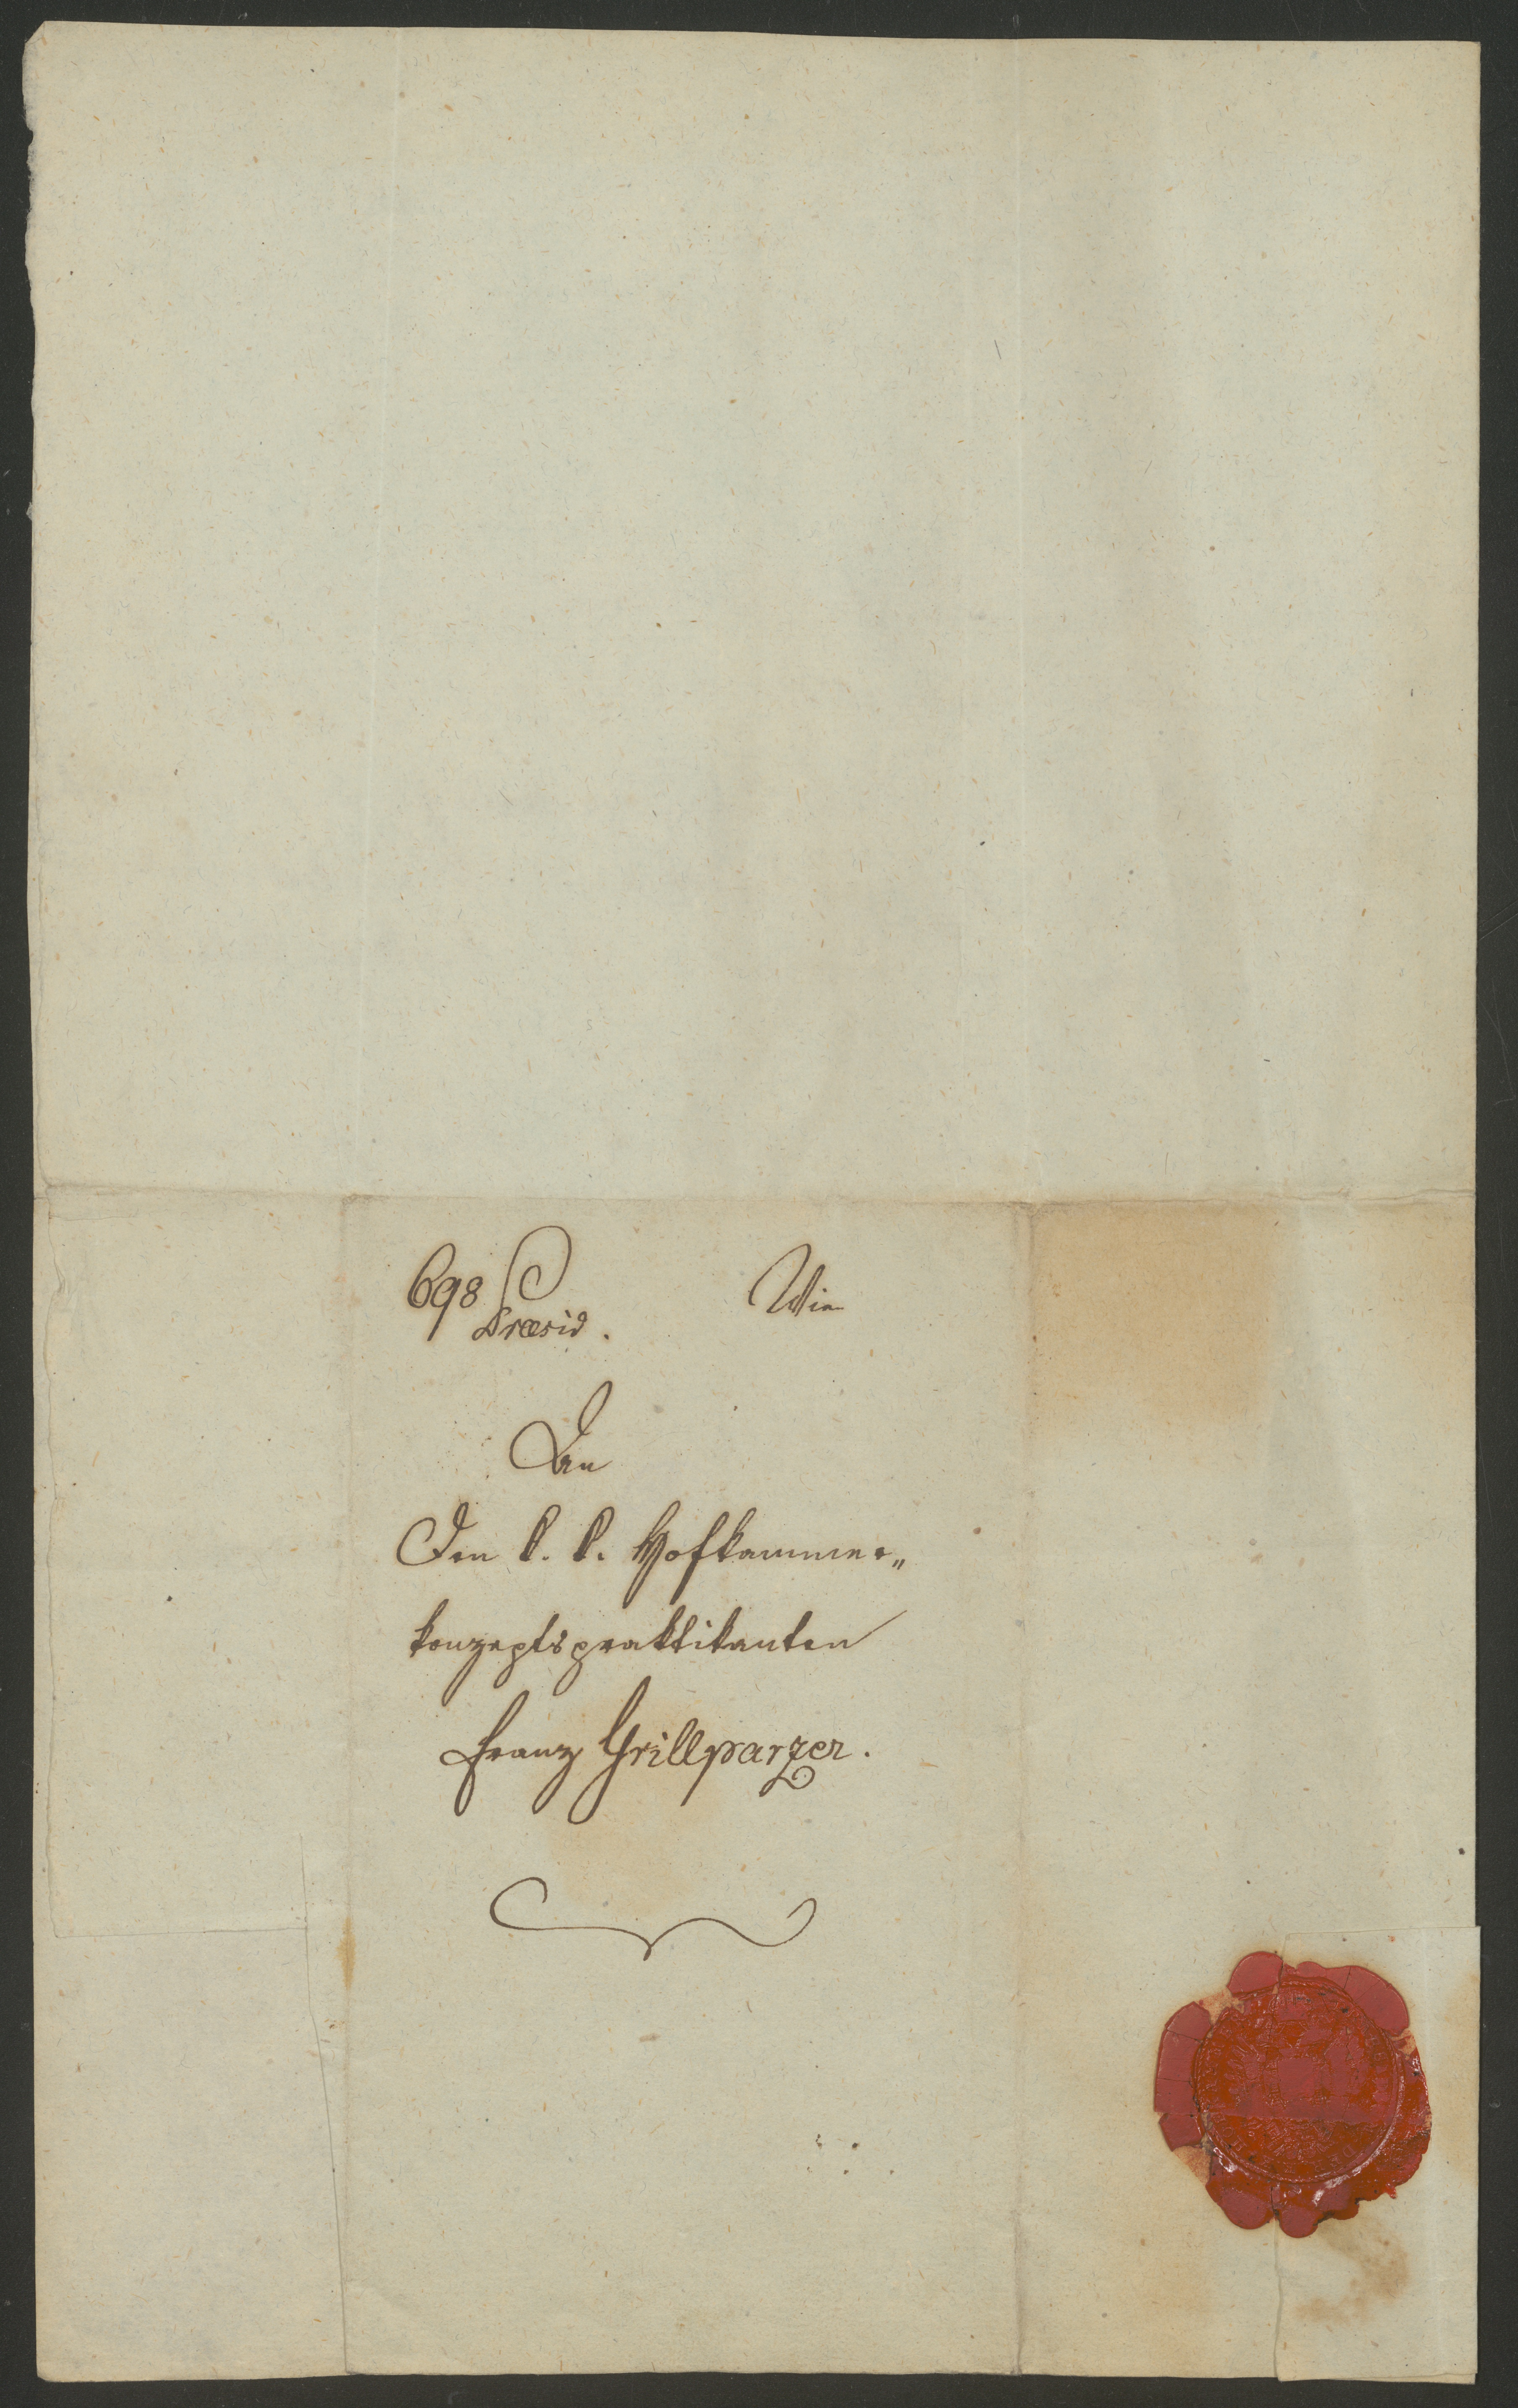 698 Wien
Præsid.
An
Den k. k. Hofkammer„
konzeptspraktikanten
Franz Grillparzer.